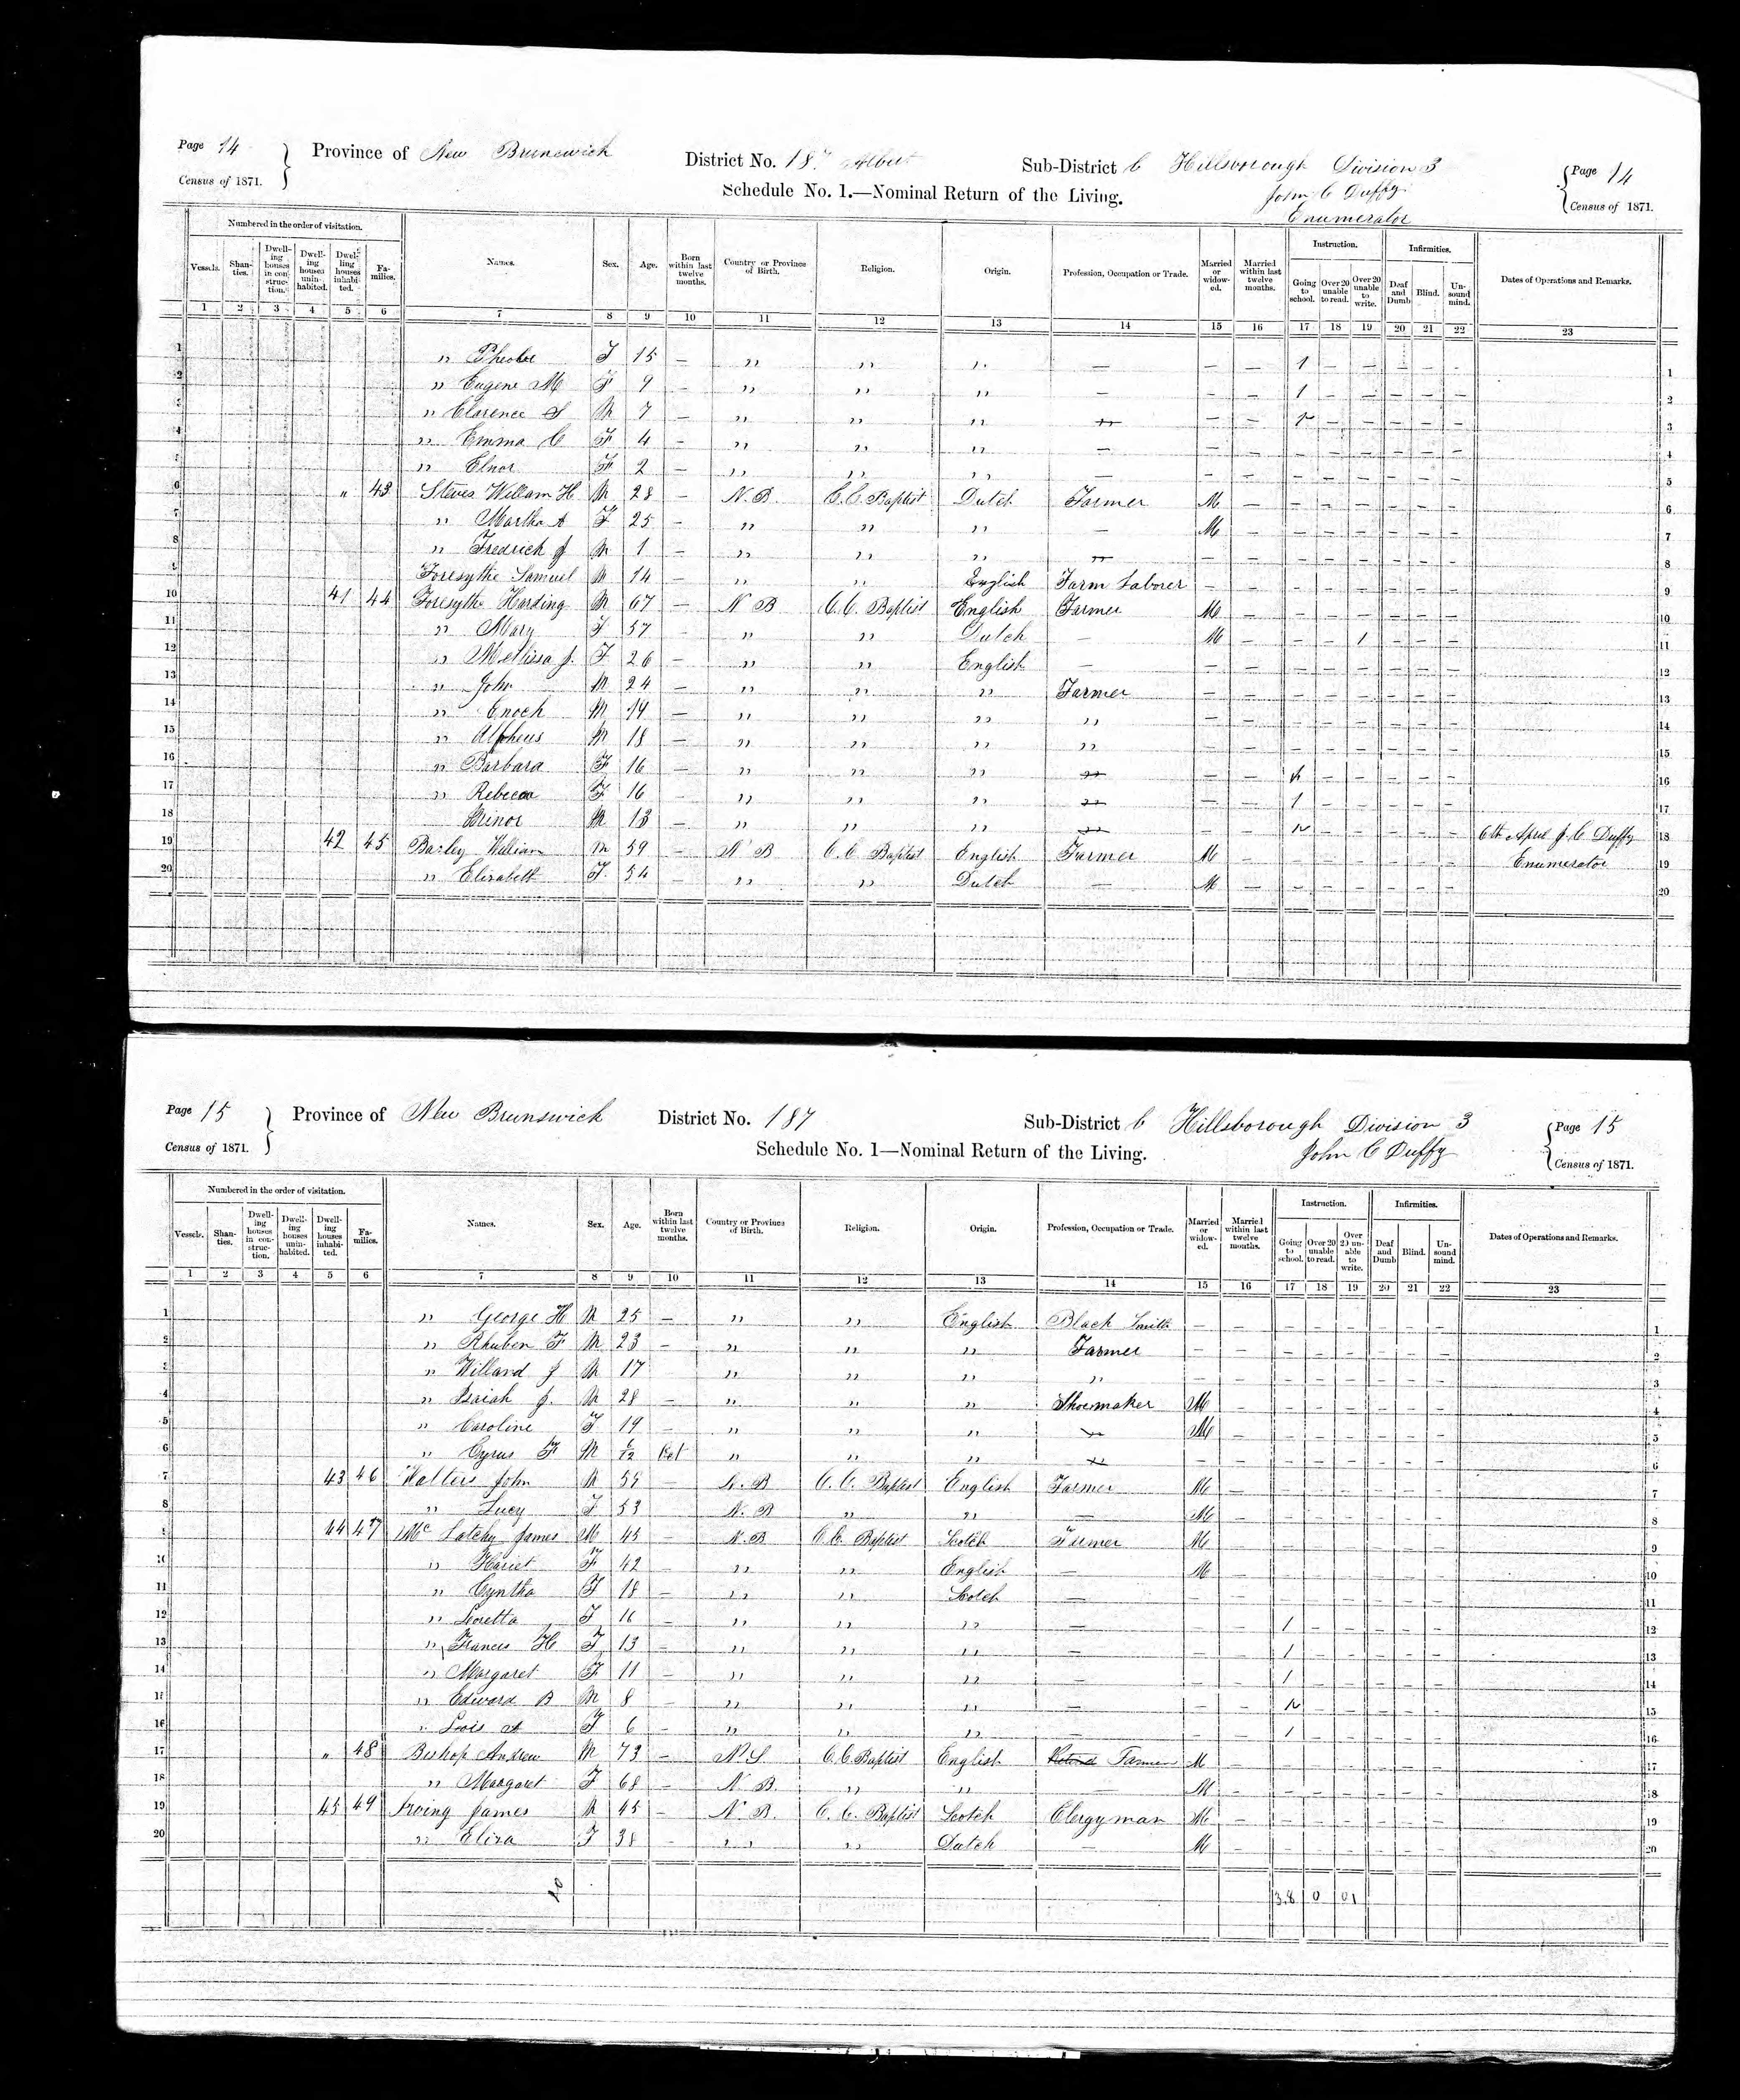 Page 14 Province of New Brunswick District No. 187 Albert Sub-District C Hillsborough Division 3 Page 14
Census of 1871. Schedule No. 1.—Nominal Return of the Living. John C Duffy Census of 1871.
Enumerator
Numbered in the order of visitation. Instruction. Infirmities.
Vessels. Shanties. Dwelling houses in construction. Dwelling houses uninhabited. Dwelling houses inhabited. Families. Names. Sex. Age. Born within last twelve months. Country or Province of Birth. Religion. Origin. Profession, Occupation or Trade. Married or widowed. Married within last twelve months. Going to school. Over 20 unable to read. Over 20 unable to write. Deaf and Dumb Blind. Unsound mind. Dates of Operations and Remarks.
1 2 3 4 5 6 7 8 9 10 11 12 13 14 15 16 17 18 19 20 21 22 23
1 " Pheobe F 15 — " " " — — — 1 — — — — — 1
2 " Eugene M F 9 — " " " — — — 1 — — — — — 2
3 " Clarence S M 7 — " " " — — — — — — — 3
4 " Emma C F 4 — " " " — — — — — — — — — 4
5 " Elnor F 2 — " " " — — — — — — — — — 5
6 " 43 Steves William H M 28 — N.B. C.C. Baptist Dutch Farmer M — — — — — — — 6
7 " Martha A F 25 — " " " — M — — — — — — — 7
8 " Fredrich J M 1 — " " " — — — — — — — — 8
9 Foresythe Samuel M 14 — " " English Farm Laborer — — — — — — — — 9
10 41 44 Foresythe Harding M 67 — N B C.C. Baptist English Farmer M — — — — — — — 10
11 " Mary F 57 — " " Dutch — M — — — 1 — — — 11
12 " Mellissa J. F 26 — " " English — — — — — — — — — 12
13 " John M 24 — " " " Farmer — — — — — — — — 13
14 " Enoch M 19 — " " " " — — — — — — — — 14
15 " Alpheus M 18 — " " " " — — — — — — — — 15
16 " Barbara F 16 — " " " — — 1 — — — — — 16
17 " Rebecca F 16 — " " " — — 1 — — — — — 17
18 Minor M 13 — " " " — — — — — — — 6th April J. C Duffy 18
19 42 45 Bayley William M 59 — N B C.C. Baptist English Farmer M — — — — — — — Enumerator 19
20 " Elizabeth F. 54 — " " Dutch — M — — — — — — — 20
Page 15 Province of New Brunswick District No. 187 Sub-District C Hillsborough Division 3 Page 15
Census of 1871. Schedule No. 1—Nominal Return of the Living. John C Duffy Census of 1871.
Numbered in the order of visitation. Instruction. Infirmities.
Vessels. Shanties. Dwelling houses in construction. Dwelling houses uninhabited. Dwelling houses inhabited. Families. Names. Sex. Age. Born within last twelve months. Country or Province of Birth. Religion. Origin. Profession, Occupation or Trade. Married or widowed. Married within last twelve months. Going to school. Over 20 unable to read. Over 20 unable to write. Deaf and Dumb Blind. Unsound mind. Dates of Operations and Remarks.
1 2 3 4 5 6 7 8 9 10 11 12 13 14 15 16 17 18 19 20 21 22 23
1 " George H M 25 — " " English Black Smith — — — — — — — — 1
2 " Rhuben F M 23 — " " " Farmer — — — — — — — — 2
3 " Willard J M 17 " " " " — — — — — — — — 3
4 " Isaiah J. M 28 — " " " Shoemaker M — — — — — — — 4
5 " Caroline F 19 — " " " M — — — — — — — 5
6 " Cyrus F M " " " — — — — — — — — 6
7 43 46 Walters John M 59 — N. B C. C. Baptist English Farmer M — — — — — — — 7
8 " Lucy F 53 — N. B " " — M — — — — — — — 8
9 44 47 McLatchy James M 45 — N.B C.C. Baptist Scotch Farmer M — — — — — — — 9
10 " Hariet F 42 — " " English — M — — — — — — — 10
11 " Cyntha F 18 — " " Scotch — — — — — — — — — 11
12 " Loretta F 16 — " " " — — — 1 — — — — — 12
13 " Francis H F 13 — " " " — — — 1 — — — — — 13
14 " Margaret F 11 — " " " — — — 1 — — — — — 14
15 " Edward B M 8 — " " " — — — — — — — — 15
16 " Lois A F 6 — " " " — — — 1 — — — — — 16
17 " 48 Bishop Andrew M 73 — N.S C.C. Baptist English Retired Farmer M — — — — — — — 17
18 " Margaret F 68 — N B. " " — M — — — — — — — 18
19 45 49 Irving James M 45 — N B. C. C. Baptist Scotch Clergyman M — — — — — — — 19
20 " Eliza F 38 — " " Dutch — M — — — — — — — 20
20 38 0 01